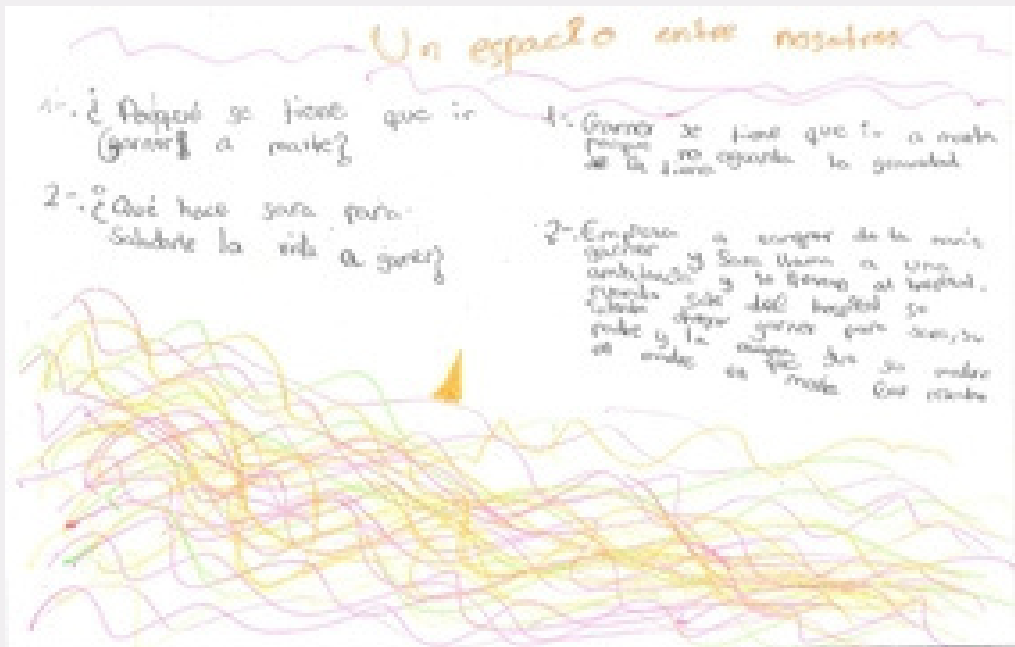 Un espacio entre nosotros
1-. ¿Porqué se tiene que ir
Garner a marte?
2-. ¿Qué hace sara para
Salvarle la vida a garner?
1-. Garner se tiene que ir a marte
porque no aguanta la gravedad
de la tierra
2-. Empieza a sangrar de la nariz
garner y Sara llama a una
ambulancia y lo llevan al hospital.
cuando sale del hospital se
garner para sara, su
padre y la que su madre